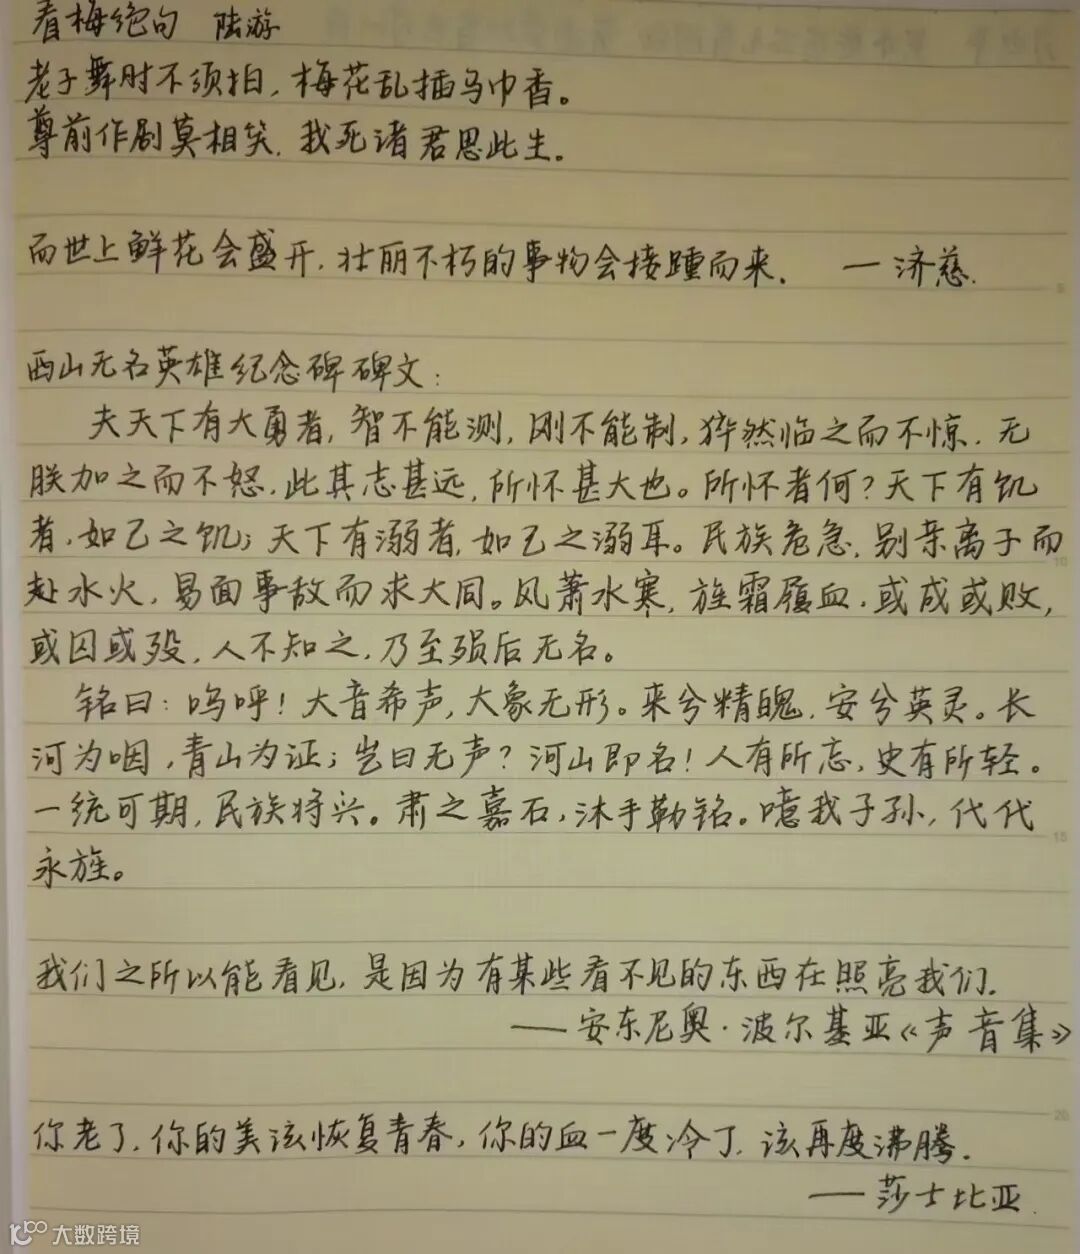 看梅绝句 陆游
老子舞时不须拍，梅花乱插乌巾香。
尊前作剧莫相笑，我死诸君思此生。
而世上鲜花会盛开，壮丽不朽的事物会接踵而来。 —济慈.
西山无名英雄纪念碑碑文：
夫天下有大勇者，智不能测，刚不能制，猝然临之而不惊，无
朕加之而不怒，此其志甚远，所怀甚大也。所怀者何？天下有饥
者，如己之饥；天下有溺者，如己之溺耳。民族危急，别亲离子而
赴水火，易面事敌而求大同。风萧水寒，旌霜履血，或成或败，
或囚或殁，人不知之，乃至殒后无名。
铭曰：呜呼！大音希声，大象无形。来兮精魄，安兮英灵。长
河为咽，青山为证；岂曰无声？河山即名！人有所忘，史有所轻。
一统可期，民族将兴。肃之嘉石，沐手勒铭。噫我子孙，代代
永旌。
我们之所以能看见，是因为有某些看不见的东西在照亮我们.
——安东尼奥·波尔基亚《声音集》
你老了，你的美该恢复青春，你的血一度冷了，该再度沸腾.
——莎士比亚
大数跨境